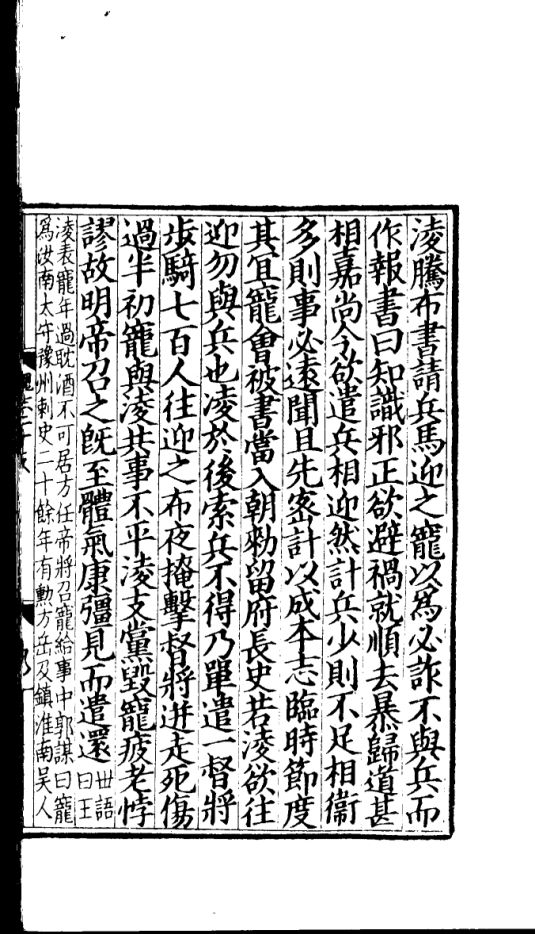 淩騰布書請兵馬迎之寵以爲必詐不與兵而
作報書曰知識邪正欲避禍就順去暴歸道甚
相嘉尚今欲遣兵相迎然計兵少則不足相衛
多則事必遠聞且先密計以成本志臨時節度
其宜寵㑹被書當入朝勑留府長史若淩欲往
迎勿與兵也淩於後索兵不得乃單遣一督將
步騎七百人往迎之布夜掩擊督將迸走死傷
過半初寵與淩共事不平淩支黨毀寵疲老悖
謬故明帝召之旣至體氣康彊見而遣還
世語
曰王
淩表寵年過耽酒不可居方任帝將召寵給事中郭謀曰寵
爲汝南太守豫州刺史二十餘年有勳方岳及鎮淮南吳人